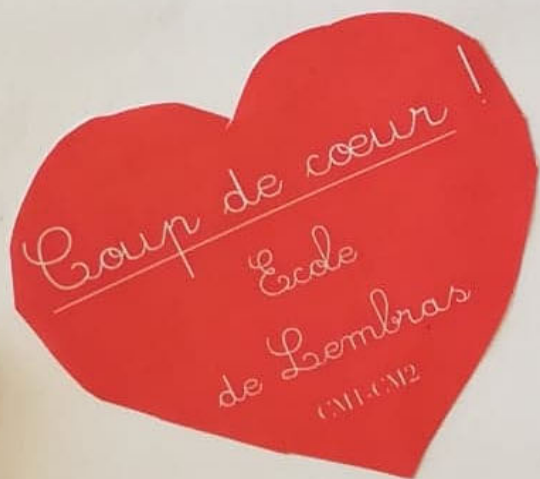 Coup de cœur !
Ecole
de Lembras
CM1-CM2